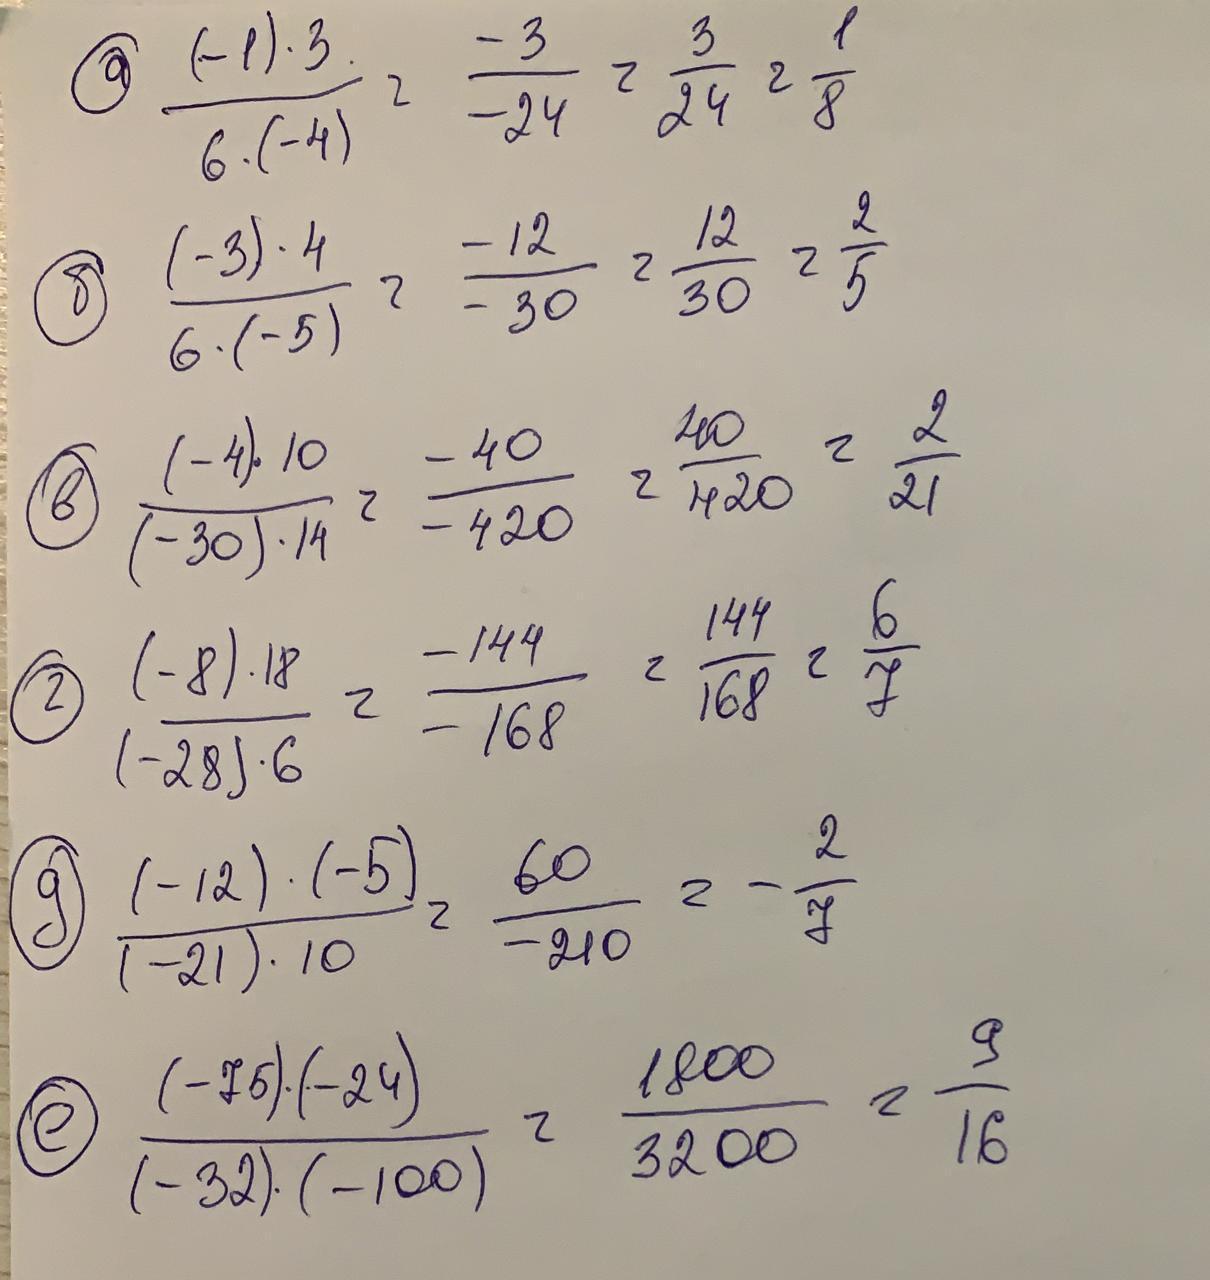 а) ((-1)·3)/(6·(-4)) = (-3)/(-24) = 3/24 = 1/8
б) ((-3)·4)/(6·(-5)) = (-12)/(-30) = 12/30 = 2/5
в) ((-4)·10)/((-30)·14) = (-40)/(-420) = 40/420 = 2/21
г) ((-8)·18)/((-28)·6) = (-144)/(-168) = 144/168 = 6/7
д) ((-12)·(-5))/((-21)·10) = 60/(-210) = -2/7
е) ((-75)·(-24))/((-32)·(-100)) = 1800/3200 = 9/16